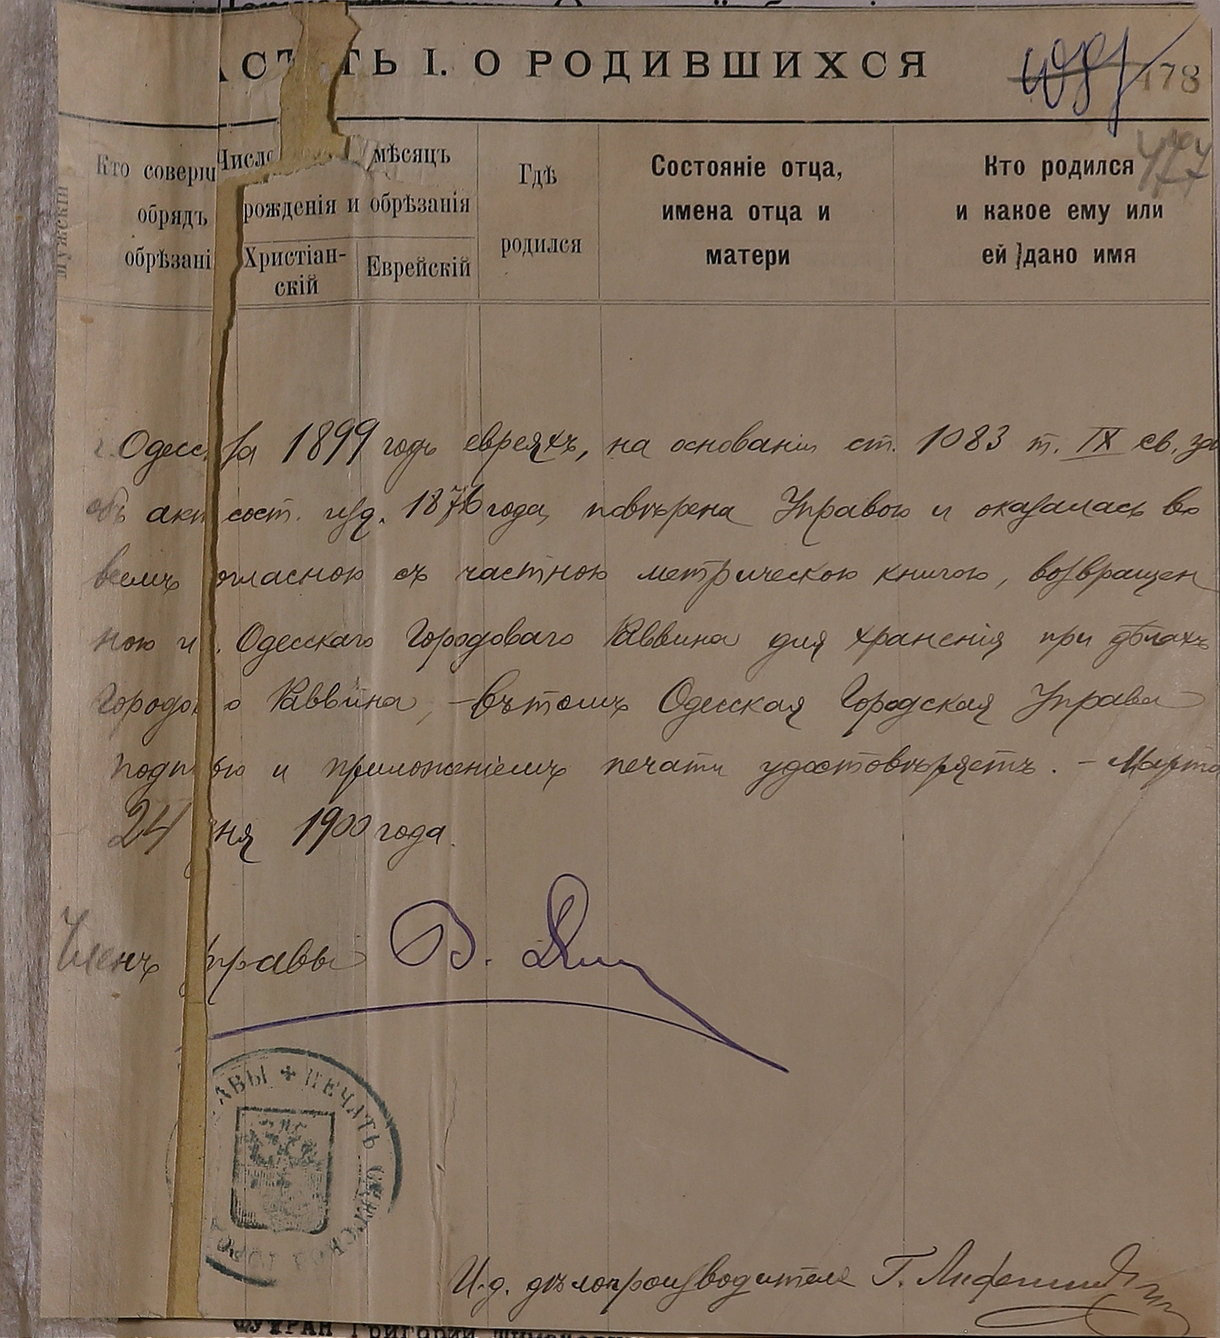 АСТЬ I. О РОДИВШИХСЯ
178
477
Мужскій
Кто соверш
обрядъ
обрѣзані
Число мѣсяцъ
рожденія и обрѣзанія
Христіан-
скій
Еврейскій
Гдѣ
родился
Состояніе отца,
имена отца и
матери
Кто родился
и какое ему или
ей дано имя
г. Одесс за 1899 годъ евреяхъ, на основаніи ст. 1083 т. IX св. зак
объ акт сост. изд. 1876 года, повѣрена Управою и оказалась во
всемъ огласною съ частною метрическою книгою, возвращен
ною и Одесскаго Городоваго Раввина для храненія при дѣлахъ
Городо о Раввина, – въ томъ Одесская Городская Управа
подп ью и приложеніемъ печати удостовѣряетъ. – Марта
24 дня 1900 года.
Членъ правы В.
АВЫ + ПЕЧАТЬ ОДЕССКОЙ ГОРО
И. д. дѣлопроизводителя Г.
ФУХРАН Григорий